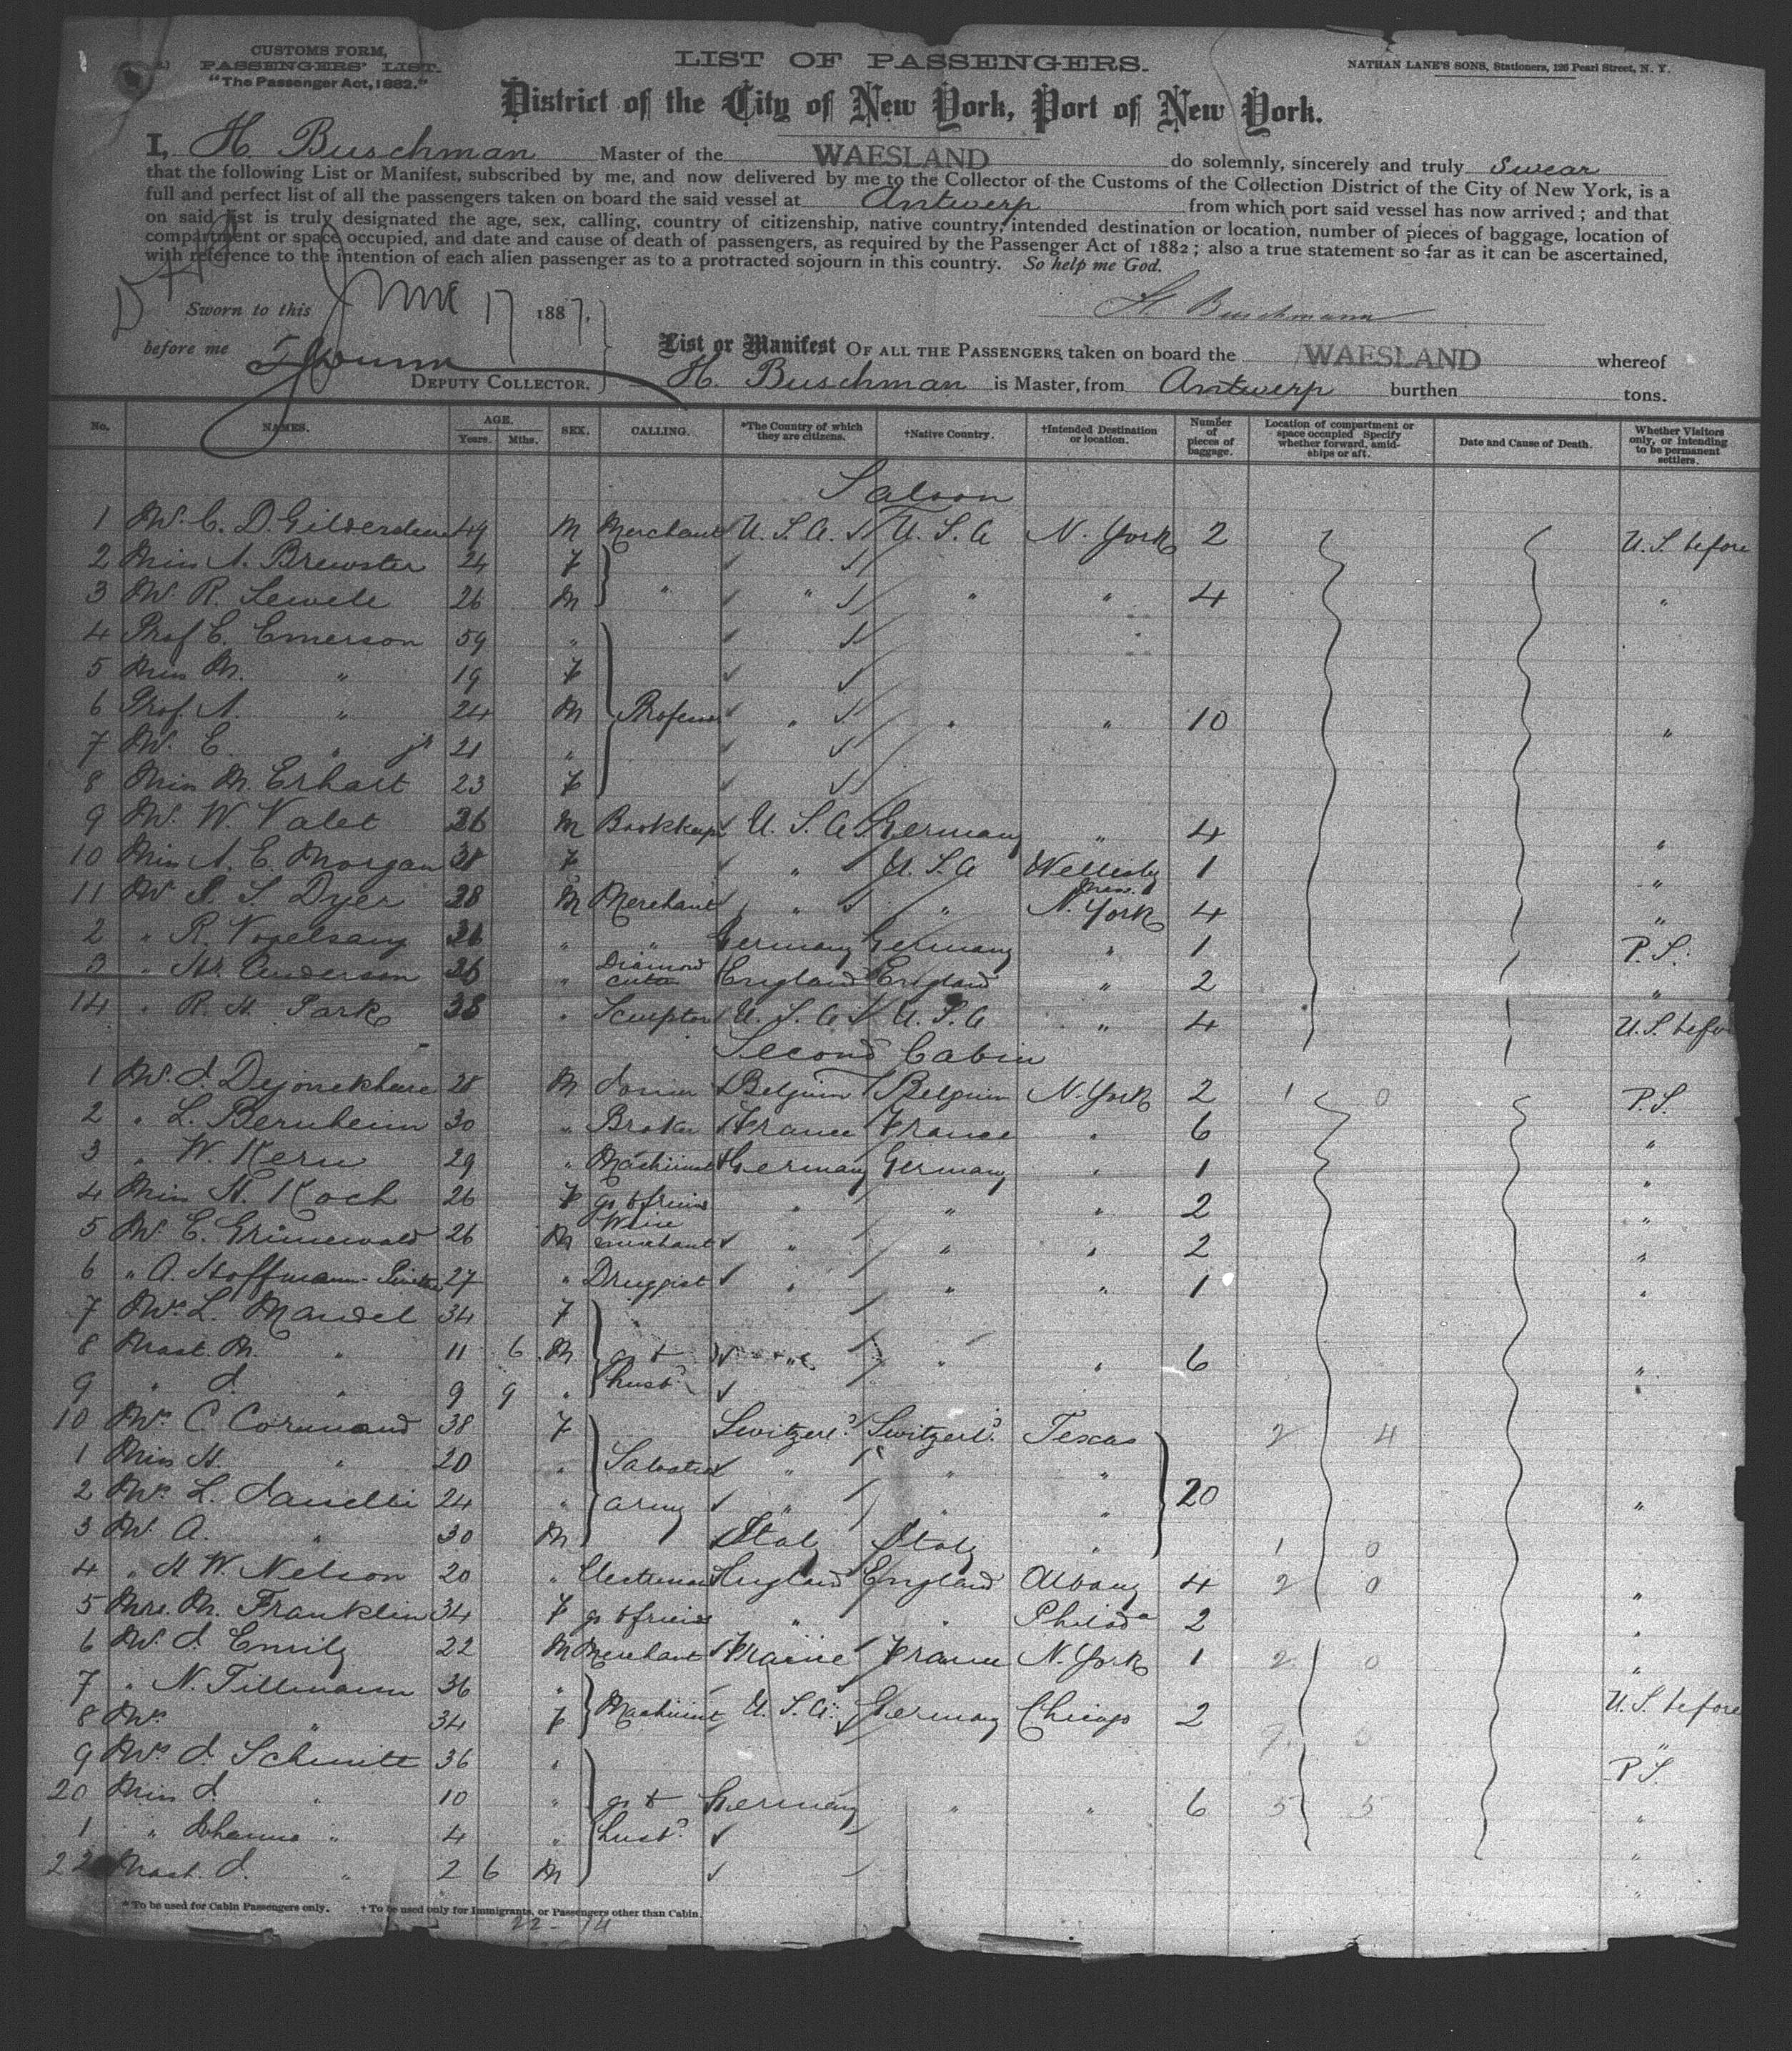 CUSTOMS FORM,
PASSENGERS' LIST.
"The Passenger Act, 1882."
LIST OF PASSENGERS.
NATHAN LANE'S SONS, Stationers, 126 Pearl Street, N. Y.
District of the City of New York, Port of New York.
I, H Buschman Master of the WAESLAND do solemnly, sincerely and truly swear
that the following List or Manifest, subscribed by me, and now delivered by me to the Collector of the Customs of the Collection District of the City of New York, is a
full and perfect list of all the passengers taken on board the said vessel at Antwerp from which port said vessel has now arrived; and that
on said list is truly designated the age, sex, calling, country of citizenship, native country, intended destination or location, number of pieces of baggage, location of
compartment or space occupied, and date and cause of death of passengers, as required by the Passenger Act of 1882; also a true statement so far as it can be ascertained,
with reference to the intention of each alien passenger as to a protracted sojourn in this country. So help me God.
Sworn to this June 17 1887.
H. Buschmann
before me
DEPUTY COLLECTOR.
List or Manifest OF ALL THE PASSENGERS taken on board the WAESLAND whereof
H. Buschman is Master, from Antwerp burthen tons.
No. NAMES. AGE. Years. Mths. SEX. CALLING. *The Country of which they are citizens. †Native Country. †Intended Destination or location. Number of pieces of baggage. Location of compartment or space occupied Specify whether forward, amidships or aft. Date and Cause of Death. Whether Visitors only, or intending to be permanent settlers.
Saloon
1 Mr. C. D. 49 M Merchant U. S. A. U. S. A N. York 2 U. S. before
2 Miss A. Brewster 24 F
3 Mr. R. 26 M " " " " 4 "
4 Prof E. Emerson 59 "
5 Miss M. " 19 F
6 Prof. A. " 24 M Professor " " " 10 "
7 Mr. E. " jr 21 "
8 Miss M. Erhart 23 F
9 Mr. W. Valet 36 M Bookkeeper U. S. A Germany " 4 "
10 Miss A. E. Morgan 38 F " U. S. A Wellesley Mass. 1 "
11 Mr S. S. Dyer 38 M Merchant " " N. York 4 "
2 " R. Vogelsang 36 " " Germany Germany " 1 P. S.
3 " Hr. Anderson 36 " Diamond cutter England England " 2 "
14 " R. H. Park 38 " Sculptor U. S. A U. S. A " 4 U. S. before
Second Cabin
1 Mr. J. 28 M Belgium Belgium N. York 2 1 0 P. S.
2 " L. Bernheim 30 " Broker France France " 6 "
3 " W. Kern 29 " Machinist Germany Germany " 1 "
4 Miss H. Koch 26 F go to friend " " " 2 "
5 Mr. E. Grunewald 26 M Wine merchant " " " 2 "
6 " A. Hoffmann 27 " Druggist " " " 1 "
7 Mrs. L. Mandel 34 F
8 Mast. M. " 11 6 M go to husbd " " 6 "
9 " J. " 9 9 " "
10 Mrs. C. 38 F Switzerld Switzerld Texas 2 4
1 Miss H. " 20 " Salvation army " " "
2 Mrs. L. 24 " " " " 20 "
3 Mr. A. " 30 M Italy Italy " 1 0
4 " H W. Nelson 20 " England England Albany 4 2 0 "
5 Mrs. M. Franklin 34 F go to friend " " Philada 2 "
6 Mr. J. Emily 22 M Merchant France France N. York 1 2 0 "
7 " N. Tillmann 36 " Machinist U. S. A. Germany Chicago 2 U. S. before
8 Mrs. " 34 F "
9 Mrs. J. Schmitt 36 " P S.
20 Miss J. " 10 " go to husbd Germany " " 6 5 5 "
1 " Johanna " 4 " "
22 Mast. J. " 2 6 M "
* To be used for Cabin Passengers only. † To be used only for Immigrants, or Passengers other than Cabin.
22 - 14